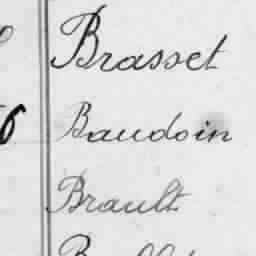 Brasset
6 Baudoin
Brault